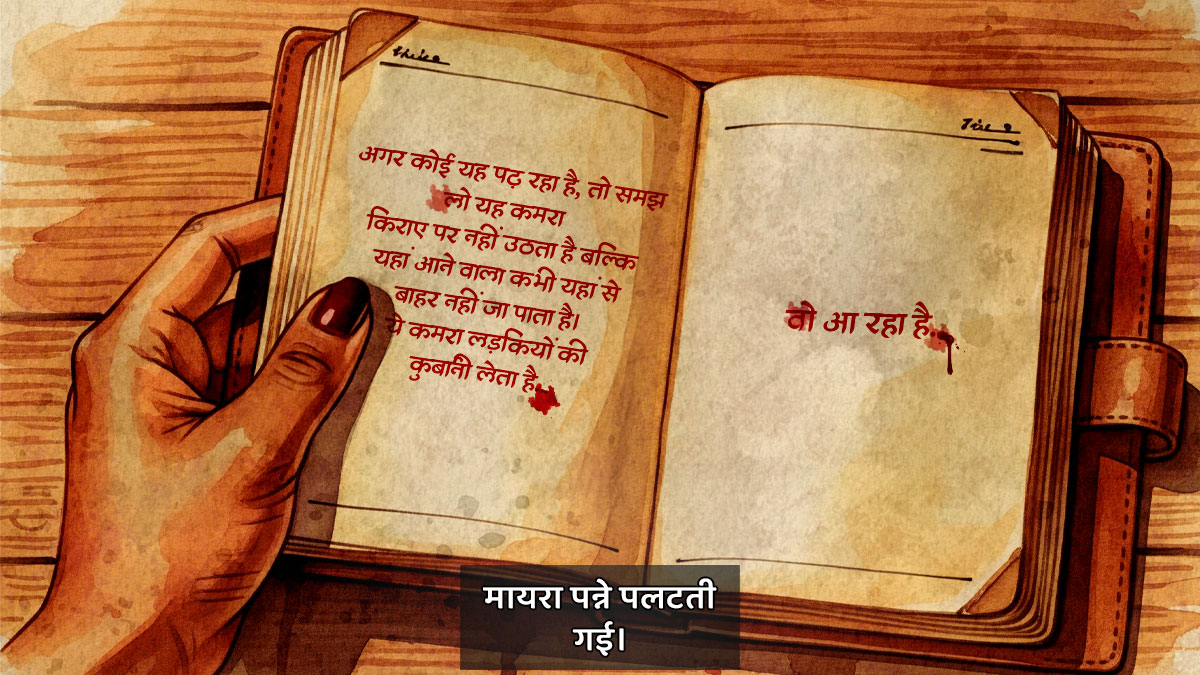 अगर कोई यह पढ़ रहा है, तो समझ
लो यह कमरा
किराए पर नहीं उठता है बल्कि
यहां आने वाला कभी यहां से
बाहर नहीं जा पाता है।
ये कमरा लड़कियों की
कुर्बानी लेता है..
वो आ रहा है...
मायरा पन्ने पलटती
गई।